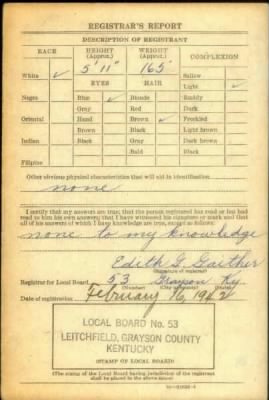 REGISTRAR'S REPORT
DESCRIPTION OF REGISTRANT
RACE HEIGHT (Approx.) WEIGHT (Approx.) COMPLEXION
White ✓ 5' 11" 165 Sallow
EYES HAIR Light ✓
Negro Blue ✓ Blonde Ruddy
Gray Red Dark
Oriental Hazel Brown ✓ Freckled
Brown Black Light brown
Indian Black Gray Dark brown
Bald Black
Filipino
Other obvious physical characteristics that will aid in identification
none
I certify that my answers are true; that the person registered has read or has had
read to him his own answers; that I have witnessed his signature or mark and that
all of his answers of which I have knowledge are true, except as follows:
none to my knowledge
Edith G. Gaither
(Signature of registrar)
Registrar for Local Board 53 Grayson Ky.
(Number) (City or county) (State)
Date of registration February 16, 1942
LOCAL BOARD No. 53
LEITCHFIELD, GRAYSON COUNTY
KENTUCKY
(STAMP OF LOCAL BOARD)
(The stamp of the Local Board having jurisdiction of the registrant
shall be placed in the above space)